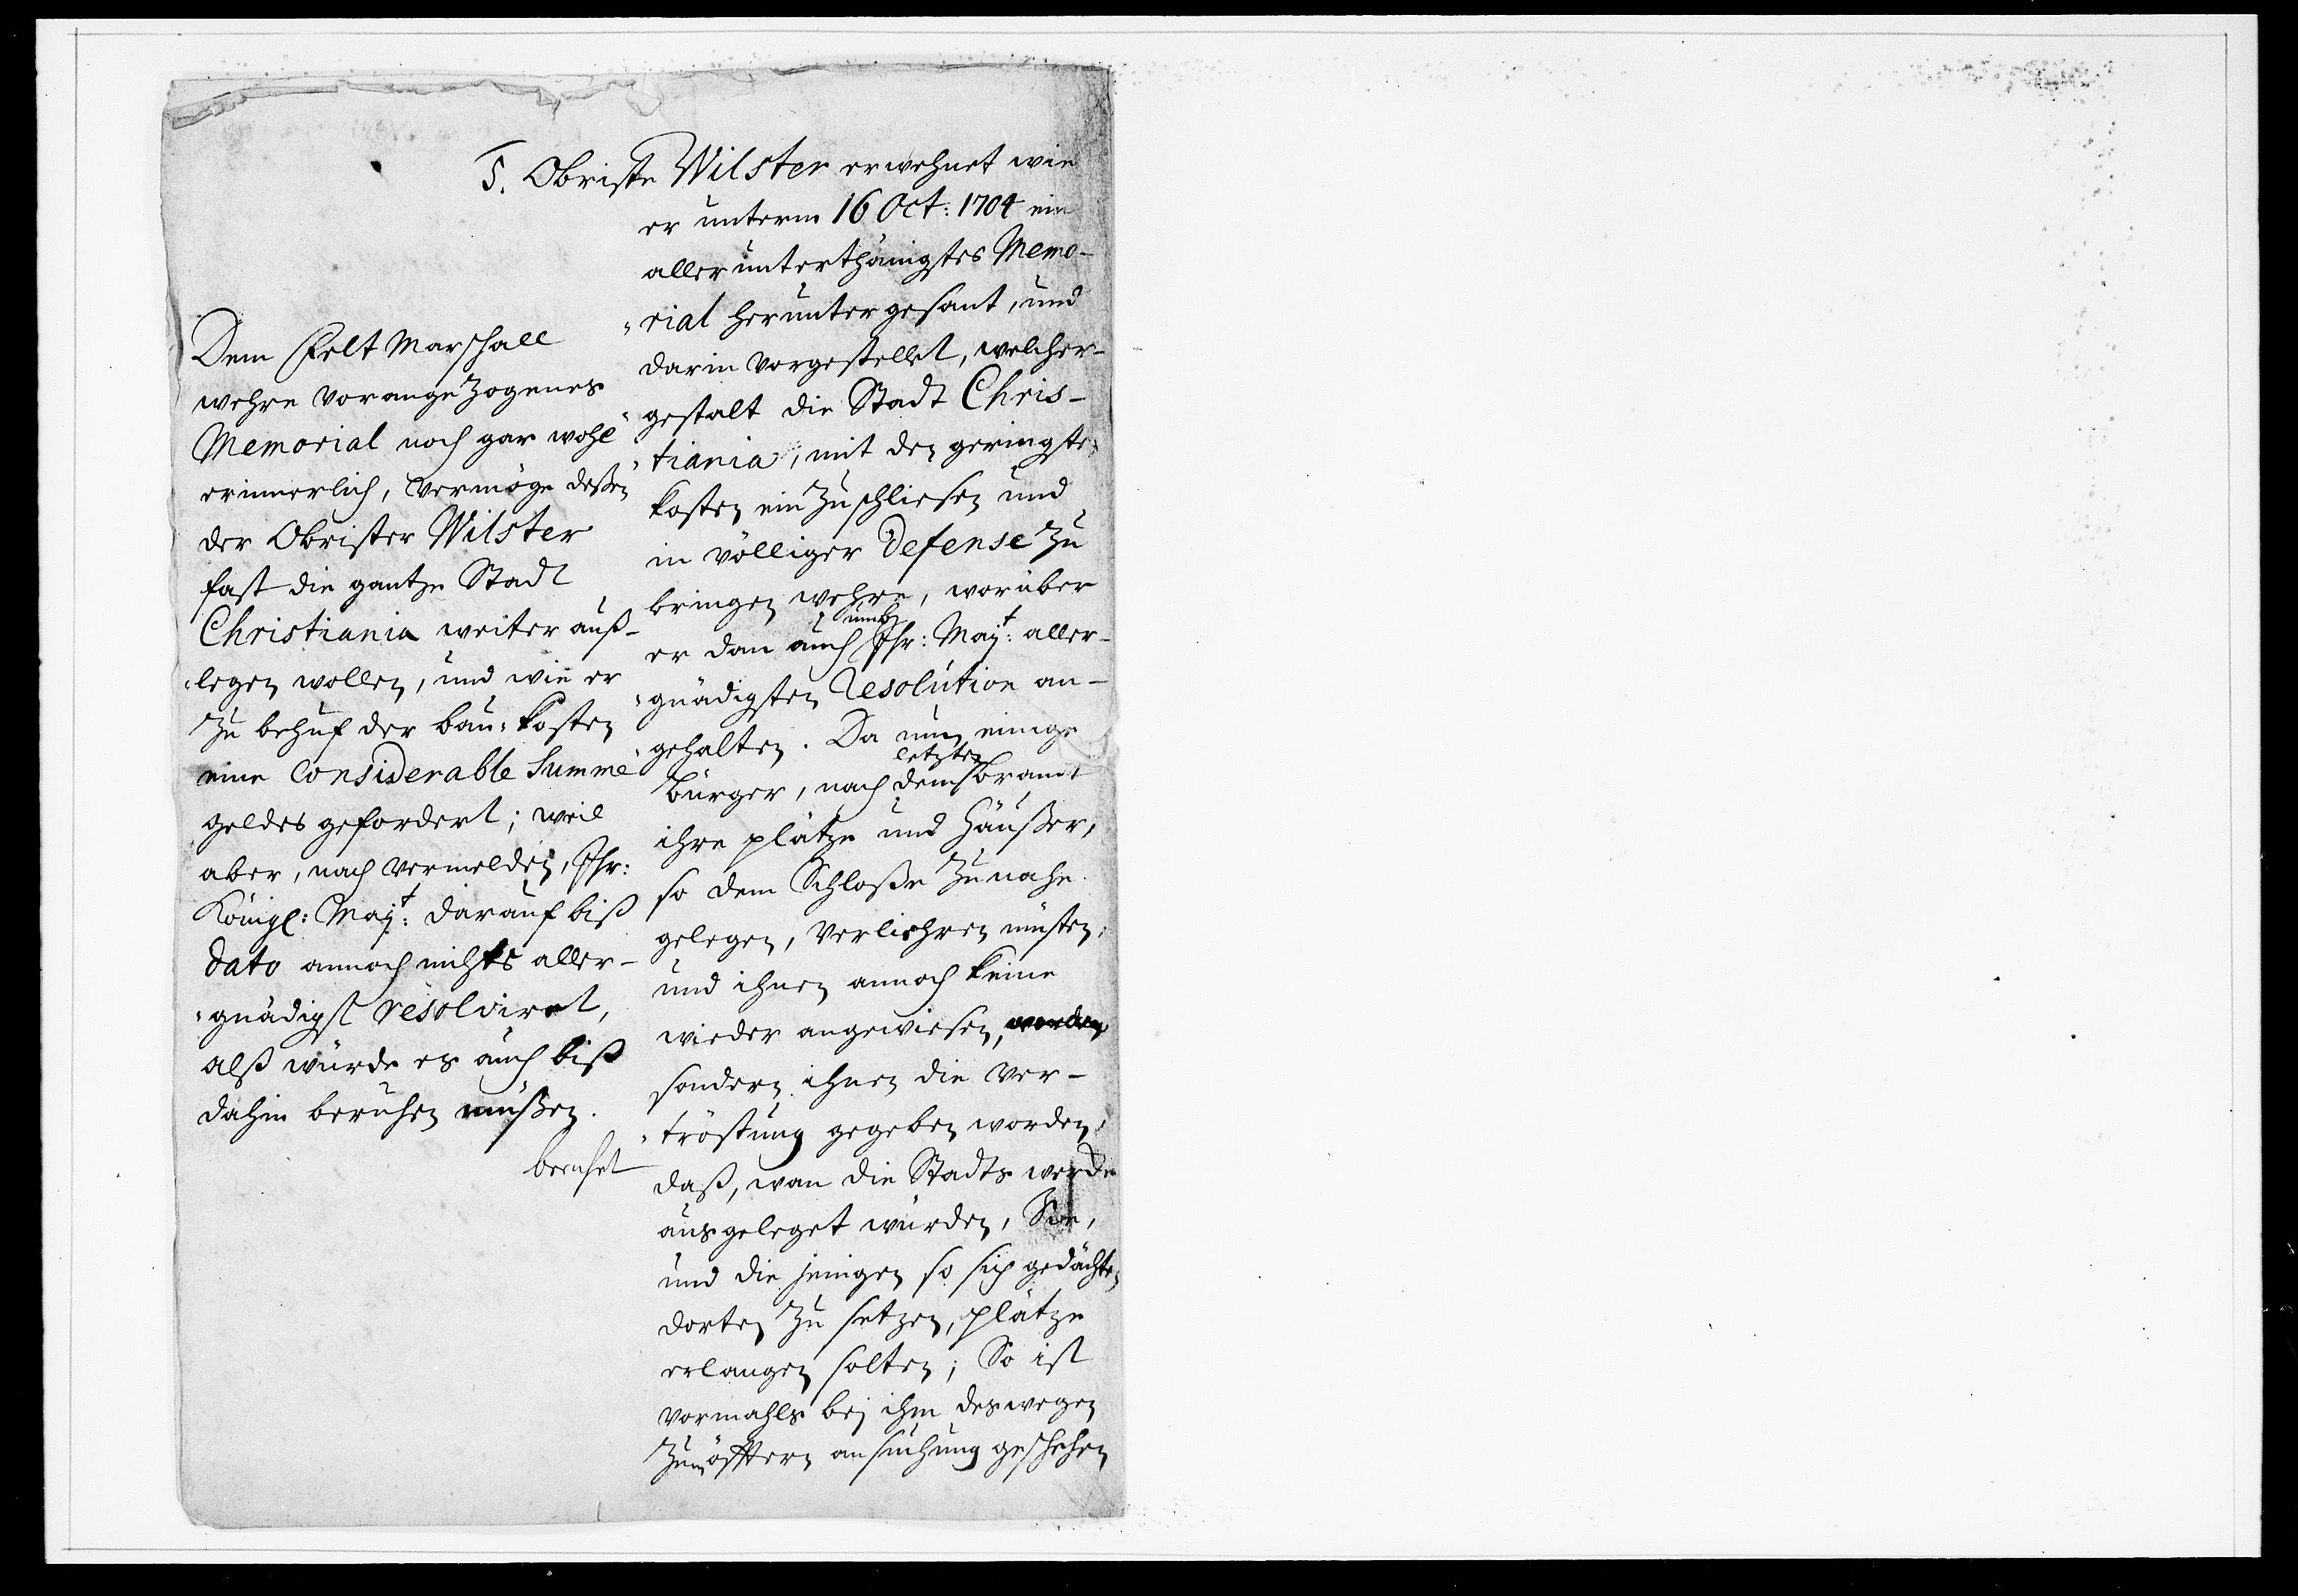 5. Obriste Wilster erwehnet wie
er unterm 16 Oct: 1704 ein
allerunterthänigstes Memo-
rial herunter gesant, und
darin vorgestellet, welcher-
gestalt die Stadt Chris-
tiania, mit den geringsten
kosten ein zu schliesen und
in völliger Defense zu
bringen wehre, worüber
er dan auch umb Ihr: Maÿt: aller-
gnädigsten Resolution an-
gehalten. Da nun einige
Bürger, nach dem letzten brant
ihre plätze und häußer,
so dem Schloße zu nahe
gelegen, verliehren müsten,
und ihnen annoch keine
wieder angewiesen, worden
sondern ihnen die ver-
tröstung gegeben worden,
daß, wan die Stadts werde
ausgeleget würden, Sie,
und die jenigen so sich gedächten
dorten zu setzen, plätze
erlangen solten; So ist
vormahls beÿ ihm deswegen
zum öfftern ansuchung geschehen
Dem Felt Marschall
wehre vorangezogenes
Memorial noch gar wohl
erinnerlich, vermöge deßen
der Obrister Wilster
fast die gantze Stadt
Christiania weiter auß-
legen wollen, und wie er
zu behuf der bau-kosten
eine Considerable Summe
geldes gefordert; weil
aber, nach vermelden, Ihr:
Königl: Maÿt: darauf biß
dato annoch nichts aller-
gnädigst resolviret,
alß würde es auch biß
dahin beruhen müßen.
beruhet